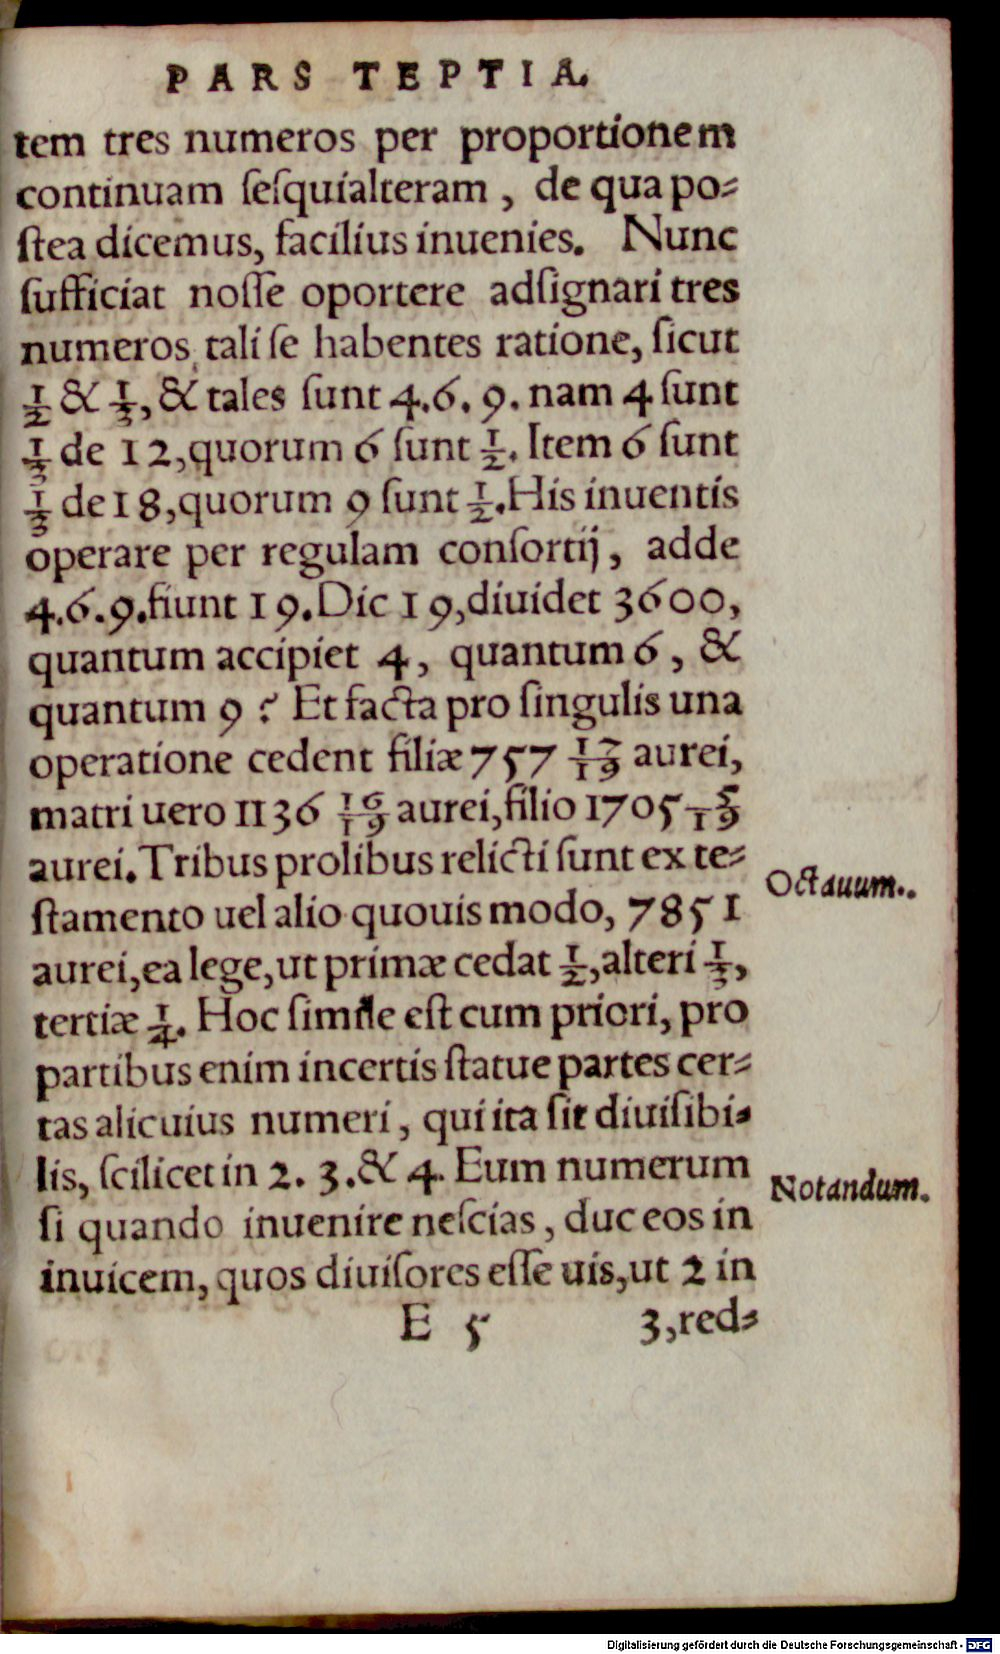 PARS TEPTIA.
tem tres numeros per proportionem
continuam ſeſquialteram, de qua po⸗
ſtea dicemus, facilius inuenies. Nunc
ſufficiat noſſe oportere adſignari tres
numeros tali ſe habentes ratione, ſicut
1/2 & 1/3, & tales ſunt 4.6.9. nam 4 ſunt
1/3 de 12, quorum 6 ſunt 1/2. Item 6 ſunt
1/3 de 18, quorum 9 ſunt 1/2. His inuentis
operare per regulam conſortij, adde
4.6.9. fiunt 19. Dic 19, diuidet 3600,
quantum accipiet 4, quantum 6, &
quantum 9? Et facta pro ſingulis una
operatione cedent filiæ 757 17/19 aurei,
matri uero 1136 16/19 aurei, filio 1705 5/19
aurei. Tribus prolibus relicti ſunt ex te⸗
Octauum.
ſtamento uel alio quouis modo, 7851
aurei, ea lege, ut primæ cedat 1/2, alteri 1/3,
tertiæ 1/4. Hoc simile eſt cum priori, pro
partibus enim incertis ſtatue partes cer⸗
tas alicuius numeri, qui ita ſit diuiſibi⸗
lis, ſcilicet in 2. 3. & 4. Eum numerum
Notandum.
ſi quando inuenire neſcias, duc eos in
inuicem, quos diuiſores eſſe uis, ut 2 in
E 5 3, red⸗
Digitalisierung gefördert durch die Deutsche Forschungsgemeinschaft - DFG